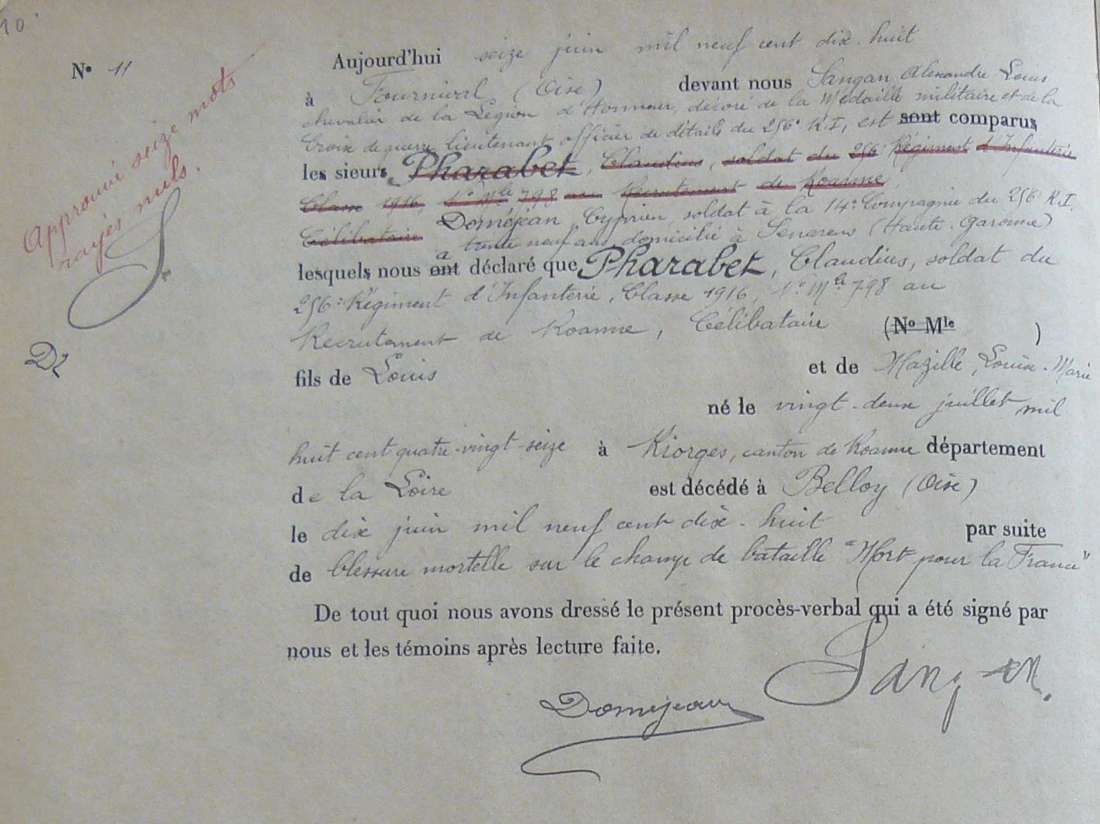 10
N° 11
Approuvé seize mots
rayés nuls.
Dz
Aujourd'hui seize juin mil neuf cent dix-huit
à Fournival (Oise) devant nous Sangan, Alexandre Louis
chevalier de la Légion d'Honneur, décoré de la Médaille militaire et de la
Croix de guerre, lieutenant officier de détails du 256e R.I, est sont comparus
les sieurs Pharabet, Claudius, soldat du 256 Régiment d'Infanterie
Classe 1916 N° Mle 798 au Recrutement de Roanne
Célibataire Doméjean, Cyprien, soldat à la 14e Compagnie du 256 R.I.
trente neuf ans domicilié à Senarens (Haute-Garonne)
lesquels nous ont a déclaré que Pharabet, Claudius, soldat du
256e Régiment d'Infanterie, Classe 1916, N° Mle 798 au
Recrutement de Roanne, Célibataire (No Mle )
fils de Louis et de Mazille, Louise-Marie
né le vingt-deux juillet mil
huit cent quatre-vingt-seize à Riorges, canton de Roanne département
de la Loire est décédé à Belloy (Oise)
le dix juin mil neuf cent dix-huit par suite
de blessure mortelle sur le champ de bataille "Mort pour la France"
De tout quoi nous avons dressé le présent procès-verbal qui a été signé par
nous et les témoins après lecture faite.
Doméjean Sangan